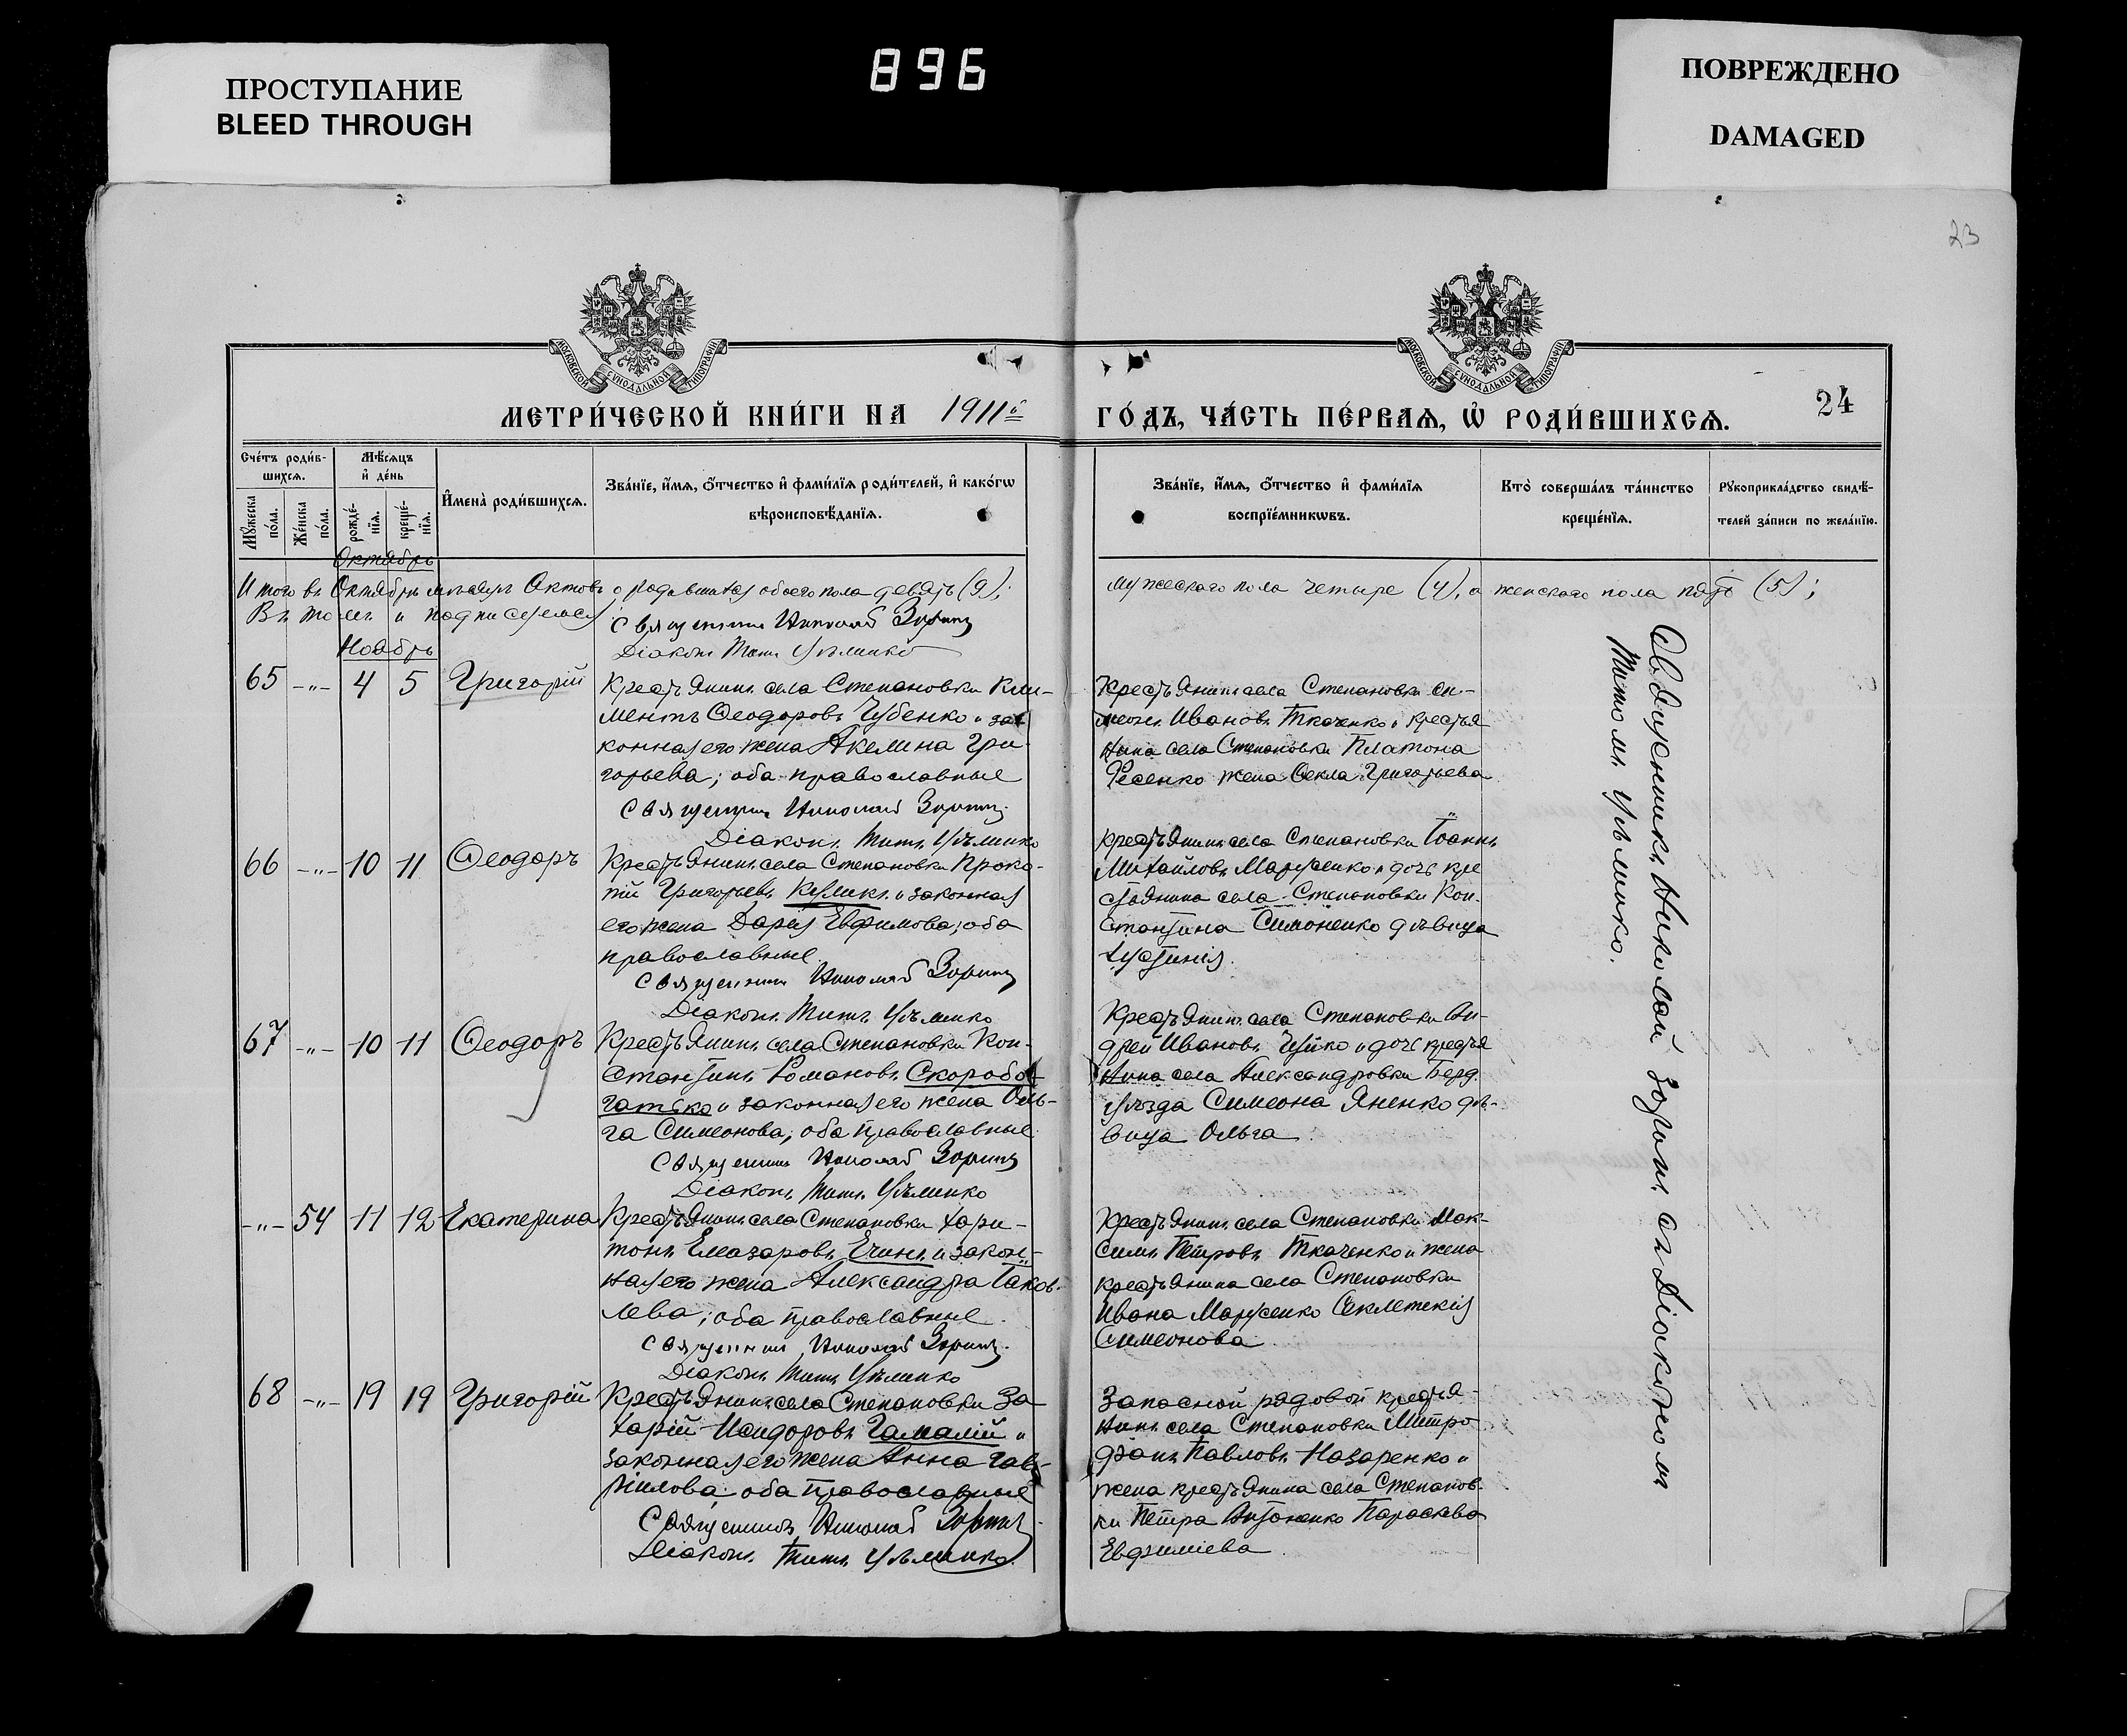 ПРОСТУПАНИЕ
BLEED THROUGH
896
ПОВРЕЖДЕНО
DAMAGED
23
МОСКОВСКОЙ СУНОДАЛЬНОЙ ТИПОГРАФІИ
МОСКОВСКОЙ СУНОДАЛЬНОЙ ТИПОГРАФІИ
МЕТРИ́ЧЕСКОЙ КНИ́ГИ НА 1911й
ГО́ДЪ, ЧА́СТЬ ПЕ́РВАѦ, Ѡ҆ РОДИ́ВШИХСѦ.
24
Сче́тъ роди́в-
шихсѧ.
Мꙋ́жеска
по́ла.
Же́нска
по́ла.
Мѣ́сѧцъ
и҆ де́нь
рожде́-
нїѧ.
креще́-
нїѧ.
И҆мена̀ роди́вшихсѧ.
Зва́нїе, и҆́мѧ, ѻ҆́тчество и҆ фами́лїѧ роди́телей, и҆ како́гѡ
вѣроисповѣ́данїѧ.
Зва́нїе, и҆́мѧ, ѻ҆́тчество и҆ фами́лїѧ
воспрїе́мникѡвъ.
Кто̀ соверша́лъ та́инство
креще́нїѧ.
Рꙋкоприкла́дство свидѣ́-
телей за́писи по жела́нїю.
Октябрь
Итого въ Октябрѣ мѣсяцѣ Актовъ о родившихся обоего пола девять (9);
мужескаго пола четыре (4), а женскаго пола пять (5);
Въ томъ и подписуемся:
Священникъ Николай Зоринъ
Діаконъ Титъ
Ноябрь
65 -"- 4 5 Григорій
Крестьянинъ села Степановки Кли-
ментъ Ѳеодоровъ Чубенко и за-
конная его жена Акелина Гри-
горьева; оба православные
Священникъ Николай Зоринъ
Діаконъ Титъ
Крестьянинъ села Степановки Си-
меонъ Ивановъ Ткаченко и крестья
нина села Степановки Платона
Фесенко жена Ѳекла Григорьева
66 -"- 10 11 Ѳеодоръ
Крестьянинъ села Степановки Проко-
пій Григорьевъ Куликъ и законная
его жена Дарія Евфимова; оба
православные.
Священникъ Николай Зоринъ
Діаконъ Титъ
Крестьянинъ села Степановки Іоаннъ
Михайловъ Марусенко и дочь кре
стьянина села Степановки Кон-
стантина Симоненко дѣвица
Іустинія.
67 -"- 10 11 Ѳеодоръ
Крестьянинъ села Степановки Кон-
стантинъ Романовъ Скоробо-
гатько и законная его жена Оль-
га Симеонова; оба православные
Священникъ Николай Зоринъ
Діаконъ Титъ
Крестьянинъ села Степановки Ан-
дрей Ивановъ Чуйко и дочь крестья
нина села Александровки Берд.
уѣзда Симеона Яненко дѣ-
вица Ольга
-"- 54 11 12 Екатерина
Крестьянинъ села Степановки Хари-
тонъ Елеазаровъ Ечинъ и закон-
ная его жена Александра Іаков-
лева; оба православные
Священникъ Николай Зоринъ.
Діаконъ Титъ
Крестьянинъ села Степановки Мак-
симъ Петровъ Ткаченко и жена
крестьянина села Степановки
Ивана Марусенко Секлетекія
Симеонова.
68 -"- 19 19 Григорій
Крестьянинъ села Степановки За-
харій Исидоровъ Гамалій и
законная его жена Анна Гав-
ріилова; оба православные
Священникъ Николай Зоринъ
Діаконъ Титъ
Запасной рядовой крестья-
нинъ села Степановки Митро
фанъ Павловъ Назаренко и
жена крестьянина села Степанов-
ки Петра Антоненко Параскева
Евфиміева
Священникъ Николай Зоринъ съ Діакономъ
Титомъ